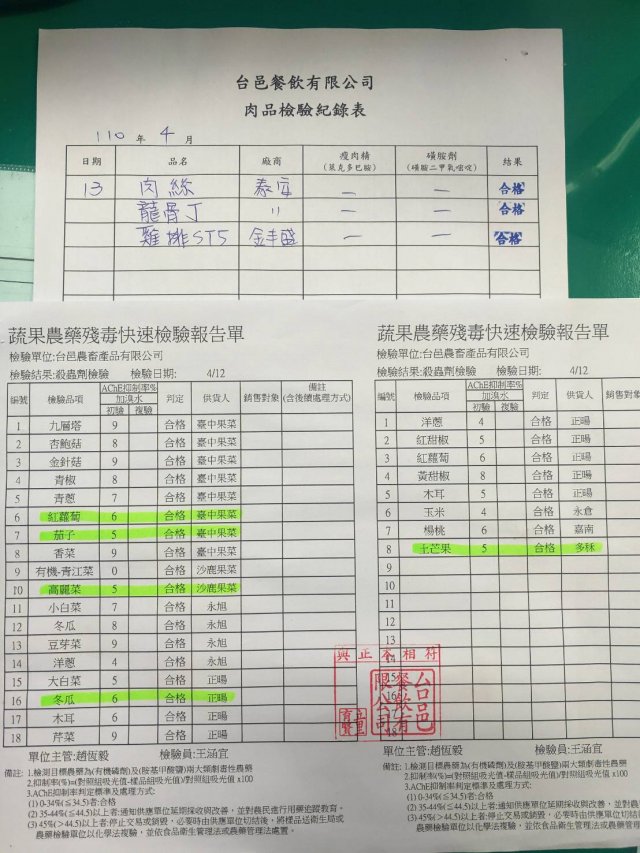 台邑餐飲有限公司
肉品檢驗紀錄表
110 年 4 月
日期 品名 廠商 瘦肉精 (萊克多巴胺) 磺胺劑 (磺胺二甲氧嘧啶) 結果
13 肉絲 泰安 — — 合格
龍骨丁 〃 — — 合格
雞排ST5 金丰盛 — — 合格
蔬果農藥殘毒快速檢驗報告單
檢驗單位:台邑農畜產品有限公司
檢驗結果:殺蟲劑檢驗 檢驗日期: 4/12
編號 檢驗品項 AChE抑制率% 加溴水 初驗 複驗 判定 供貨人 銷售對象 備註 (含後續處理方式)
1 九層塔 9 合格 臺中果菜
2 杏鮑菇 8 合格 臺中果菜
3 金針菇 9 合格 臺中果菜
4 青椒 8 合格 臺中果菜
5 青蔥 7 合格 臺中果菜
6 紅蘿蔔 6 合格 臺中果菜
7 茄子 5 合格 臺中果菜
8 香菜 9 合格 臺中果菜
9 有機-青江菜 0 合格 沙鹿果菜
10 高麗菜 5 合格 沙鹿果菜
11 小白菜 7 合格 永旭
12 冬瓜 8 合格 永旭
13 豆芽菜 9 合格 永旭
14 洋蔥 4 合格 永旭
15 大白菜 5 合格 正暘
16 冬瓜 6 合格 正暘
17 木耳 6 合格 正暘
18 芹菜 9 合格 正暘
單位主管:趙恆毅 檢驗員:王涵宜
備註: 1.檢測目標農藥為(有機磷劑)及(胺基甲酸鹽)兩大類劇毒性農藥
2.抑制率(%)=(對照組吸光值-樣品組吸光值)/對照組吸光值 x100
3.AChE抑制率判定標準及處理方式:
(1) 0-34%(≦34.5)者:合格
(2) 35-44%(≦44.5)以上者:通知供應單位延期採收與改善，並對農民進行用藥追蹤教育。
(3) 45%(>44.5)以上者:停止交易或銷毀，必要時由供應單位切結後，將樣品送衛生局或
農藥檢驗單位以化學法複驗，並依食品衛生管理法或農藥管理法處置。
蔬果農藥殘毒快速檢驗報告單
檢驗單位:台邑農畜產品有限公司
檢驗結果:殺蟲劑檢驗 檢驗日期: 4/12
編號 檢驗品項 AChE抑制率% 加溴水 初驗 複驗 判定 供貨人 銷售對象
1 洋蔥 4 合格 正暘
2 紅甜椒 5 合格 正暘
3 紅蘿蔔 6 合格 正暘
4 黃甜椒 8 合格 正暘
5 木耳 5 合格 正暘
6 玉米 4 合格 永倉
7 楊桃 6 合格 嘉南
8 土芒果 5 合格 多秝
9
10
11
12
13
14
15
16
17
18
與正本相符
台邑餐飲有限公司
單位主管:趙恆毅 檢驗員:王涵宜
備註: 1.檢測目標農藥為(有機磷劑)及(胺基甲酸鹽)兩大類劇毒性農藥
2.抑制率(%)=(對照組吸光值-樣品組吸光值)/對照組吸光值 x100
3.AChE抑制率判定標準及處理方式:
(1) 0-34%(≦34.5)者:合格
(2) 35-44%(≦44.5)以上者:通知供應單位延期採收與改善，並對
(3) 45%(>44.5)以上者:停止交易或銷毀，必要時由供應單位切結
農藥檢驗單位以化學法複驗，並依食品衛生管理法或農藥管